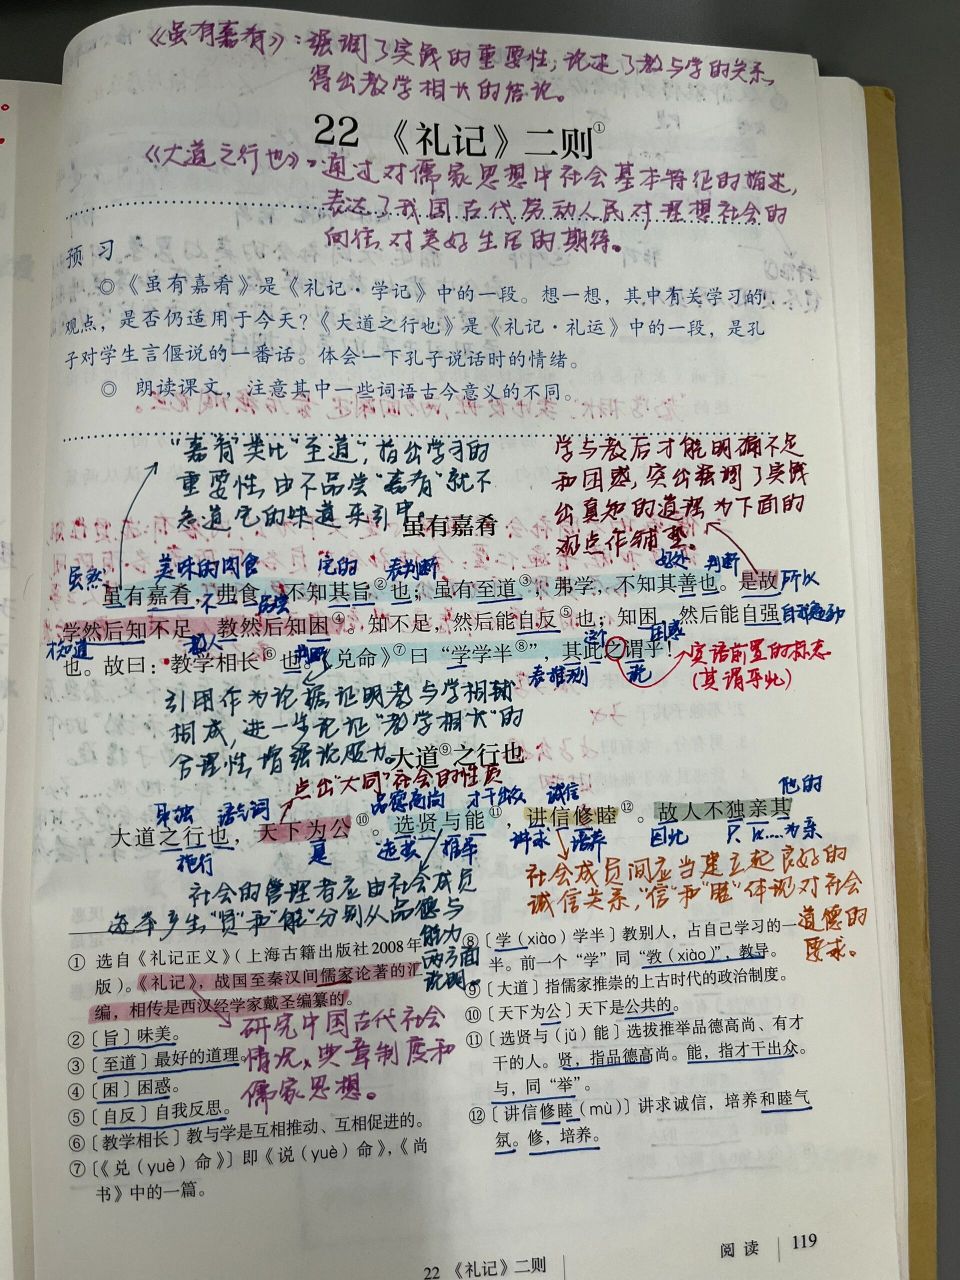 《虽有嘉肴》：强调了实践的重要性，论述了教与学的关系，
得出教学相长的结论。
22 《礼记》二则①
《大道之行也》：通过对儒家思想中社会基本特征的描述，
表达了我国古代劳动人民对理想社会的
向往，对美好生活的期待。
预 习
◎《虽有嘉肴》是《礼记·学记》中的一段。想一想，其中有关学习的
观点，是否仍适用于今天？《大道之行也》是《礼记·礼运》中的一段，是孔
子对学生言偃说的一番话。体会一下孔子说话时的情绪。
◎ 朗读课文，注意其中一些词语古今意义的不同。
"嘉肴"类比"至道"，指出学习的
重要性，由不品尝"嘉肴"就不
知道它的味道来引申。
学与教后才能明确不足
和困惑，突出强调了实践
出真知的道理，为下面的
观点作铺垫。
虽有嘉肴
虽然 美味的肉食 它的 表判断 好处 判断
虽有嘉肴，弗食，不知其旨②也；虽有至道③，弗学，不知其善也。是故
所以
不 品尝
学然后知不足，教然后知困④。知不足，然后能自反⑤也；知困，然后能自强
知道 教人 这个 困惑
也。故曰：教学相长⑥也。《兑命》⑦曰"学学半⑧"，其此之谓乎！
表推测 说
宾语前置的标志
(其谓乎此)
引用作为论据证明教与学相辅
相成，进一步论证"教学相长"的
合理性，增强说服力。
大道⑨之行也
点出"大同"社会的性质
语气词 品德高尚 才干出众 诚信 他的
大道之行也，天下为公⑩。选贤与能⑪，讲信修睦⑫。故人不独亲其
施行 是 选拔 推举 讲求 培养 因此 只 以……为亲
社会的管理者应由社会成员
选举产生，"贤"和"能"分别从品德与
能力
两方面
说明。
社会成员间应当建立起良好的
诚信关系，"信"和"睦"体现对社会
道德的
要求。
① 选自《礼记正义》（上海古籍出版社2008年
版）。《礼记》，战国至秦汉间儒家论著的汇
编，相传是西汉经学家戴圣编纂的。
研究中国古代社会
情况、典章制度和
儒家思想。
②〔旨〕味美。
③〔至道〕最好的道理。
④〔困〕困惑。
⑤〔自反〕自我反思。
⑥〔教学相长〕教与学是互相推动、互相促进的。
⑦〔《兑（yuè）命》〕即《说（yuè）命》，《尚
书》中的一篇。
⑧〔学（xiào）学半〕教别人，占自己学习的一
半。前一个"学"同"敩（xiào）"，教导。
⑨〔大道〕指儒家推崇的上古时代的政治制度。
⑩〔天下为公〕天下是公共的。
⑪〔选贤与（jǔ）能〕选拔推举品德高尚、有才
干的人。贤，指品德高尚。能，指才干出众。
与，同"举"。
⑫〔讲信修睦（mù）〕讲求诚信，培养和睦气
氛。修，培养。
阅读 119
22 《礼记》二则